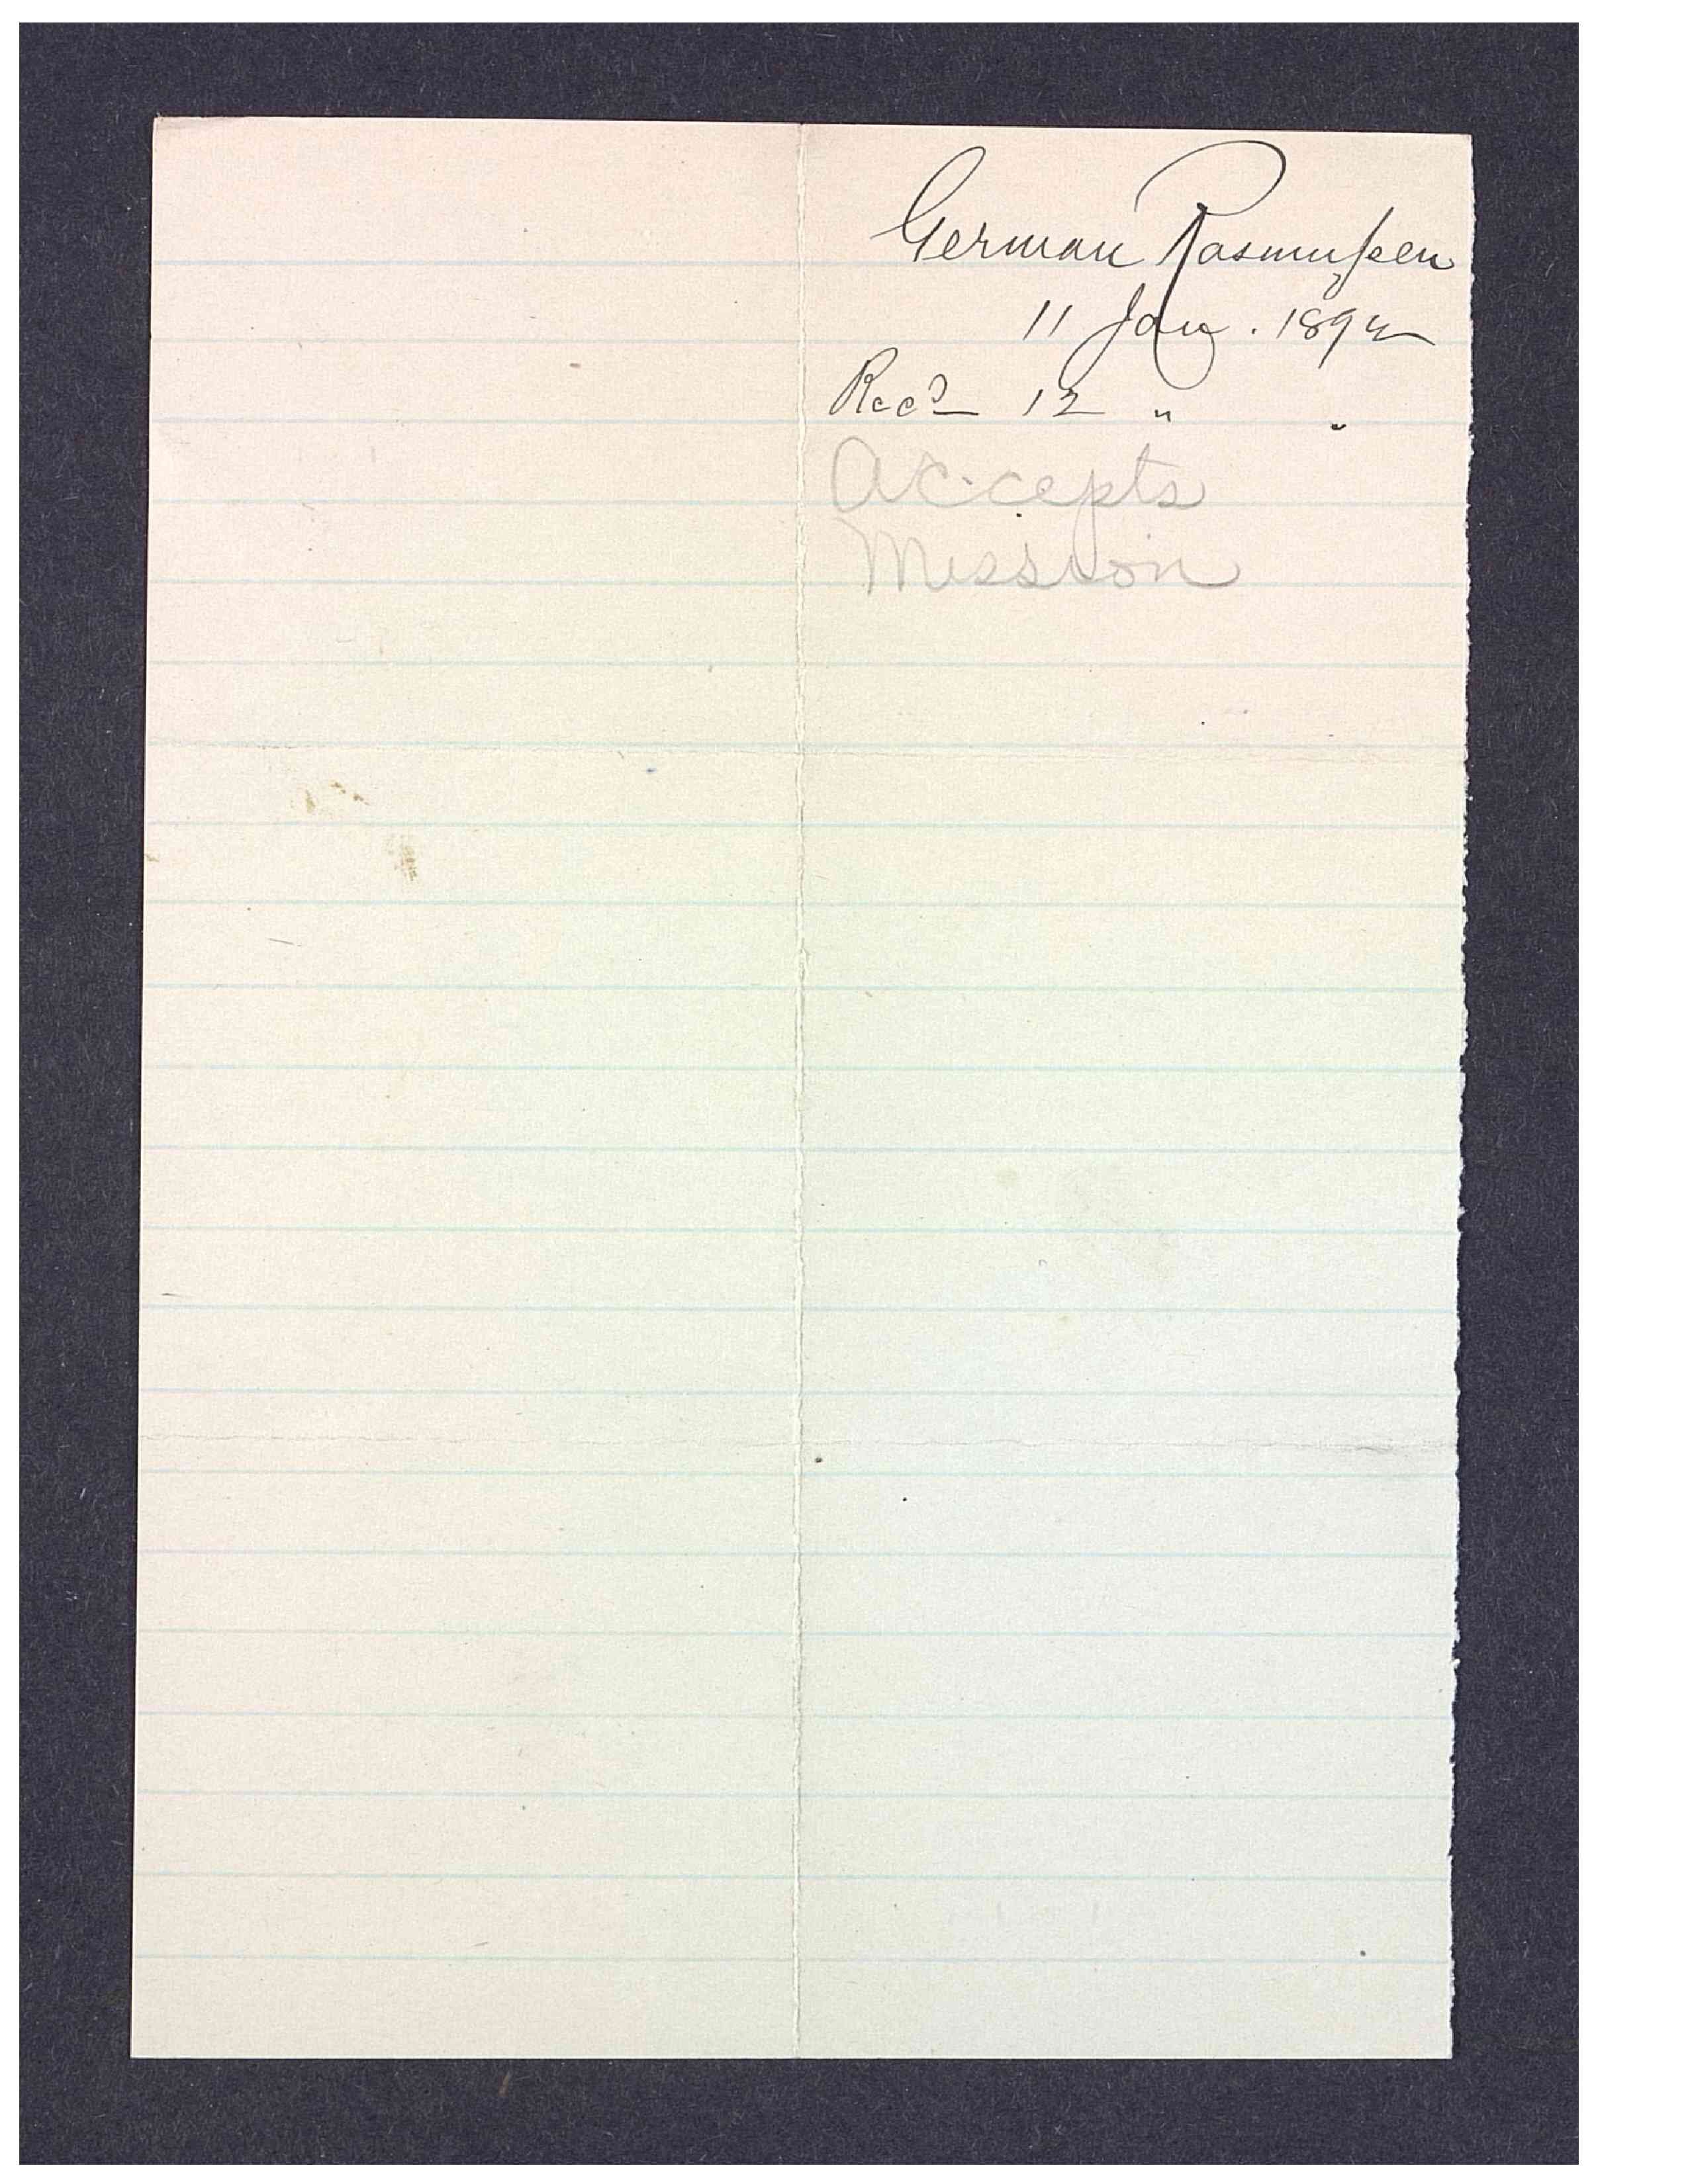 German Rasmussen
11 Jany. 1892
Recd 12 " "
Accepts
Mission